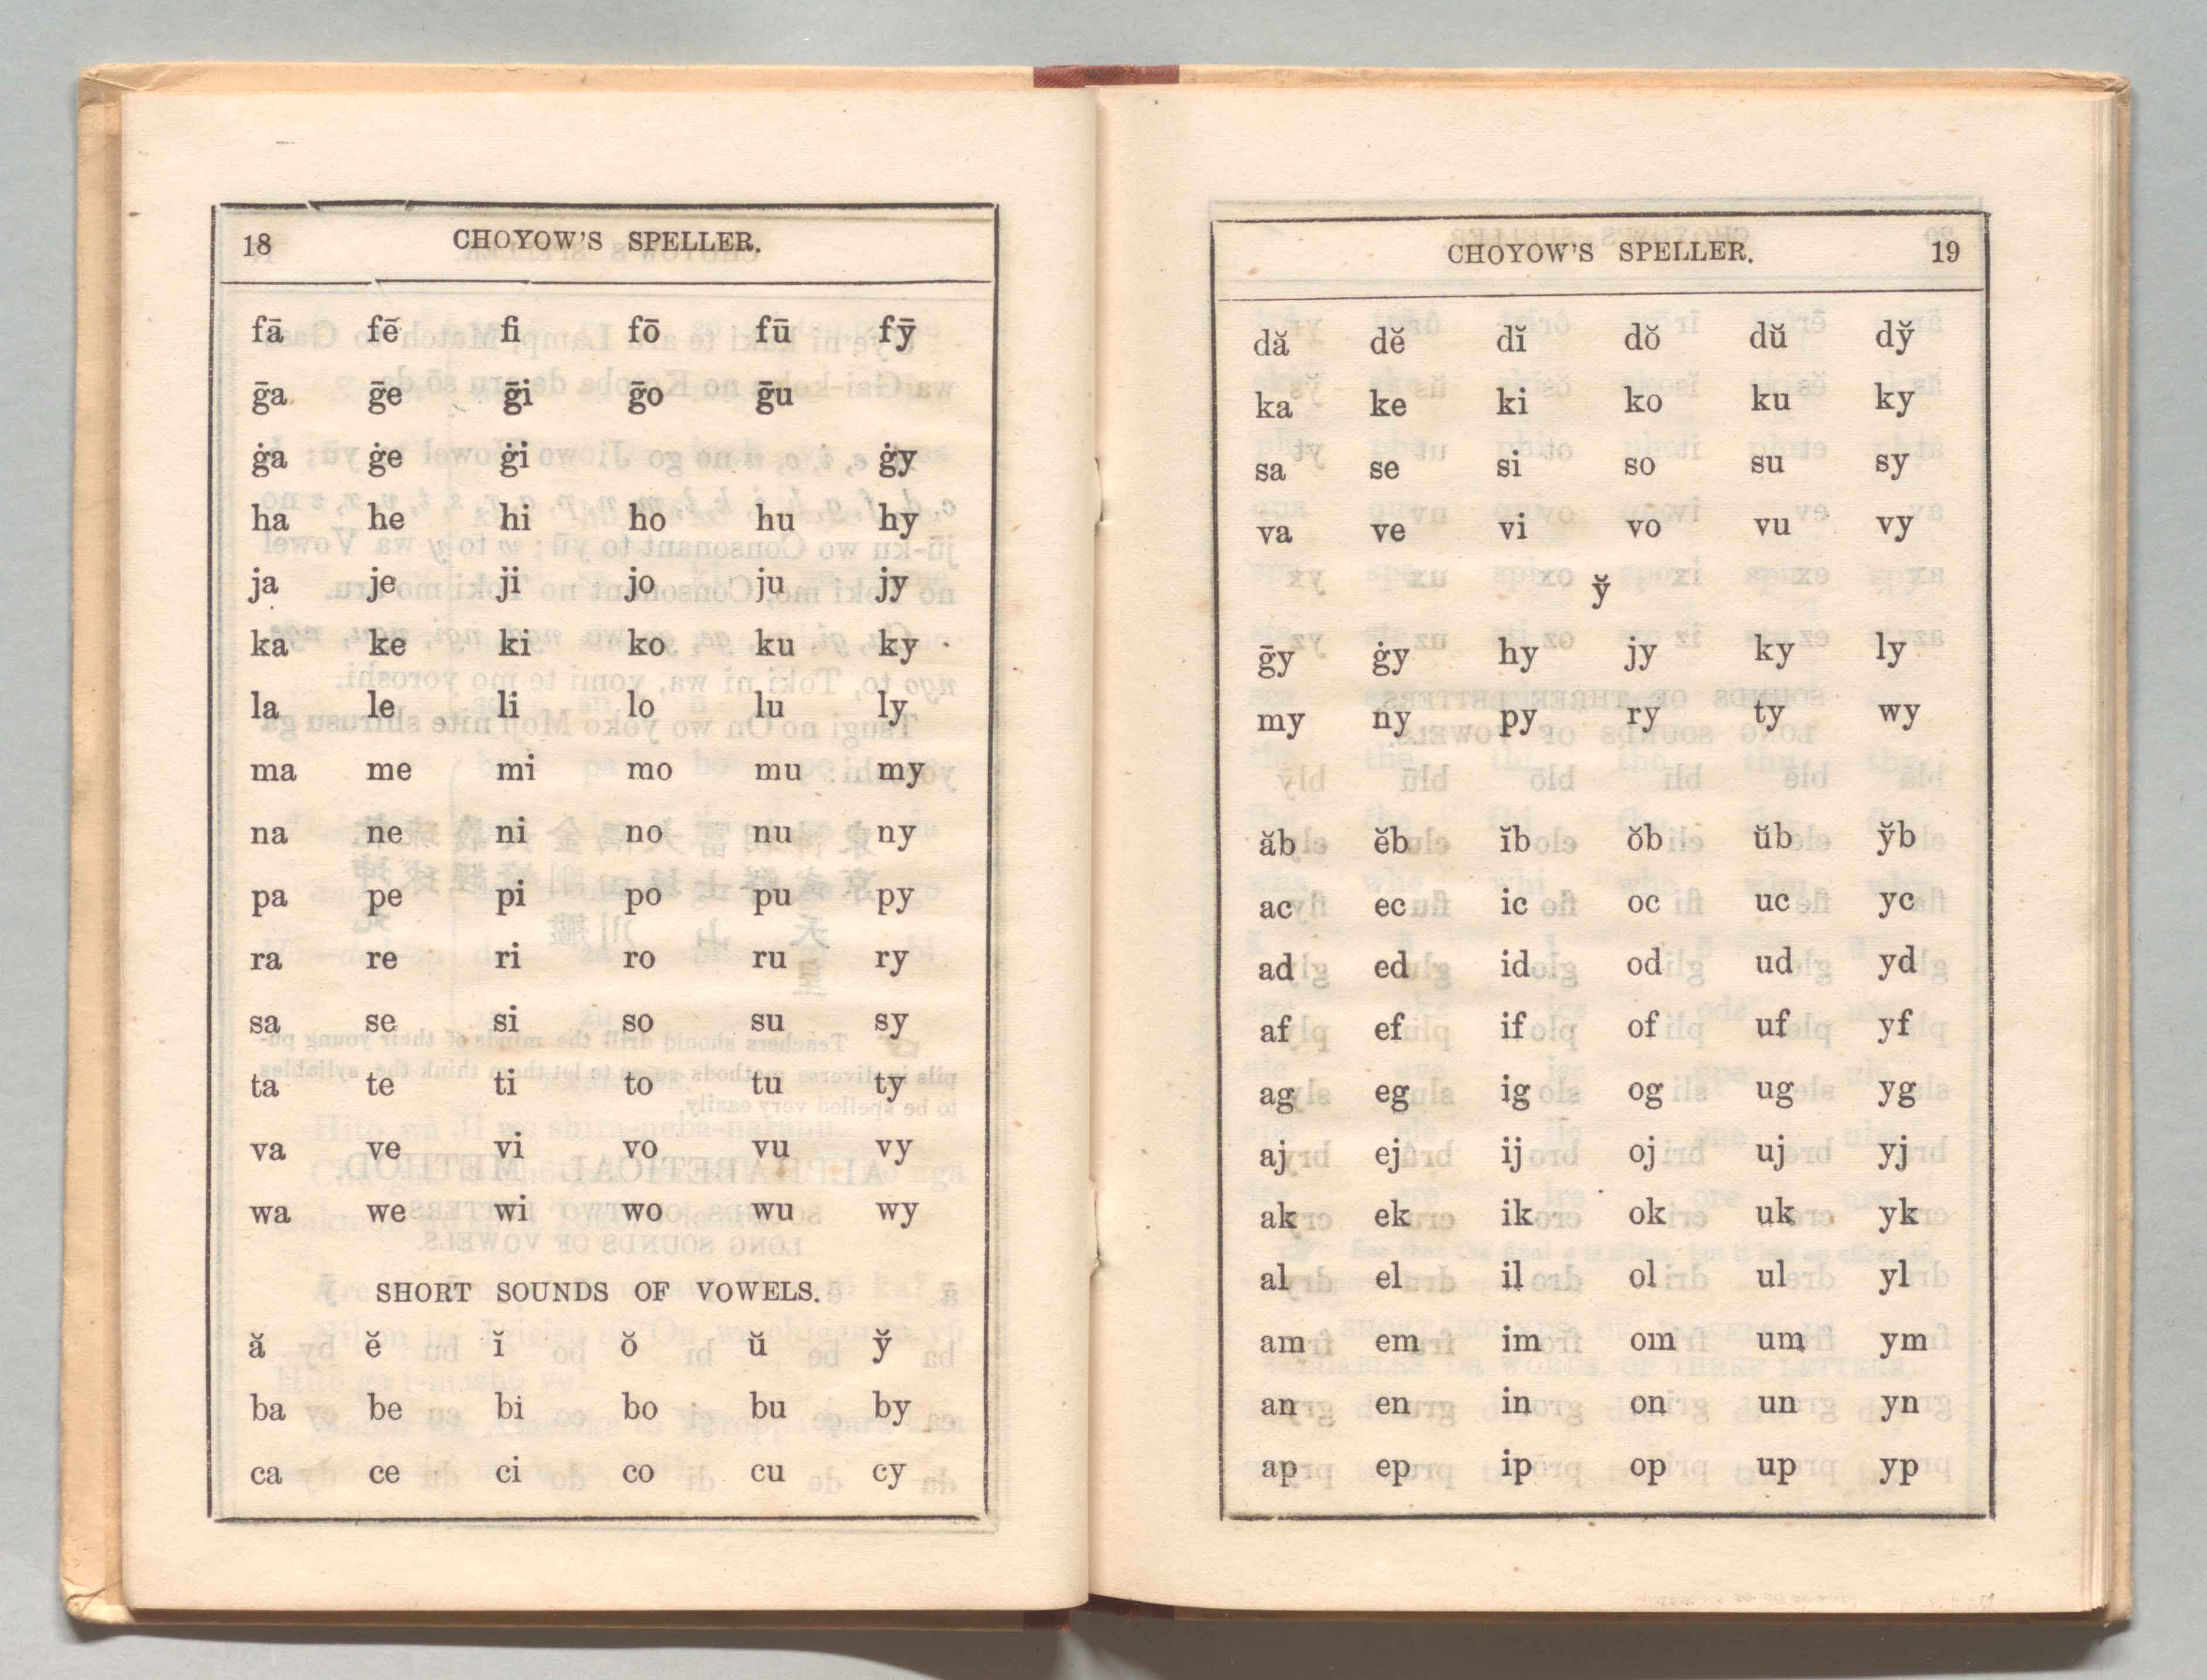 18 CHOYOW'S SPELLER.
fā fē fi fō fū fȳ
ḡa ḡe ḡi ḡo ḡu
ġa ġe ġi ġy
ha he hi ho hu hy
ja je ji jo ju jy
ka ke ki ko ku ky
la le li lo lu ly
ma me mi mo mu my
na ne ni no nu ny
pa pe pi po pu py
ra re ri ro ru ry
sa se si so su sy
ta te ti to tu ty
va ve vi vo vu vy
wa we wi wo wu wy
SHORT SOUNDS OF VOWELS.
ă ĕ ĭ ŏ ŭ y̆
ba be bi bo bu by
ca ce ci co cu cy
CHOYOW'S SPELLER. 19
dă dĕ dĭ dŏ dŭ dy̆
ka ke ki ko ku ky
sa se si so su sy
va ve vi vo vu vy
y̆
ḡy ġy hy jy ky ly
my ny py ry ty wy
ăb ĕb ĭb ŏb ŭb y̆b
ac ec ic oc uc yc
ad ed id od ud yd
af ef if of uf yf
ag eg ig og ug yg
aj ej ij oj uj yj
ak ek ik ok uk yk
al el il ol ul yl
am em im om um ym
an en in on un yn
ap ep ip op up yp